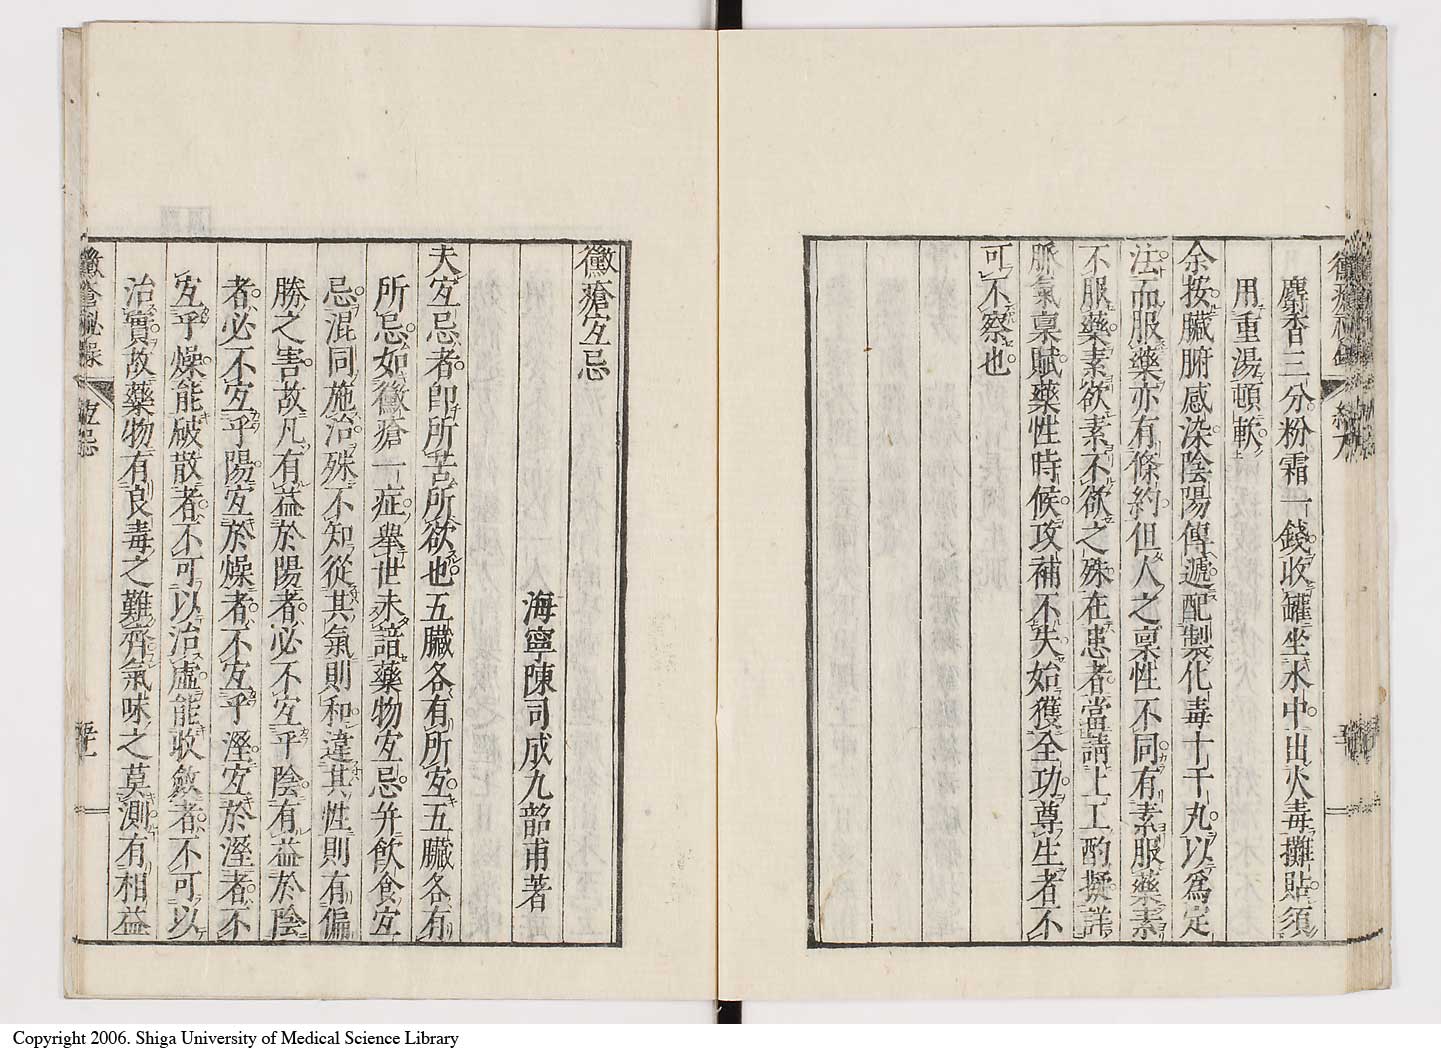 麝香三分粉霜一錢收罐坐水中出火毒攤貼須
用重湯頓軟
余按臟腑感染陰陽傳遞配製化毒十千丸以爲定
法而服藥亦有條約但人之稟性不同有素服藥素
不服藥素欲素不欲之殊在患者當請上工酌擬詳
脈氣稟賦藥性時候攻補不失始獲全功尊生者不
可不察也
黴瘡宐忌
海寧陳司成九韶甫著
夫宐忌者卽所苦所欲也五臟各有所宐五臟各有
所忌如黴瘡一症舉世未諳藥物宐忌幷飮食宐
忌混同施治殊不知從其氣則和違其性則有偏
勝之害故凡有益於陽者必不宐乎陰有益於陰
者必不宐乎陽宐於燥者不宐乎溼宐於溼者不
宐乎燥能破散者不可以治虛能收斂者不可以
治實故藥物有良毒之難齊氣味之莫測有相益
黴瘡秘錄
宐忌
Copyright 2006. Shiga University of Medical Science Library